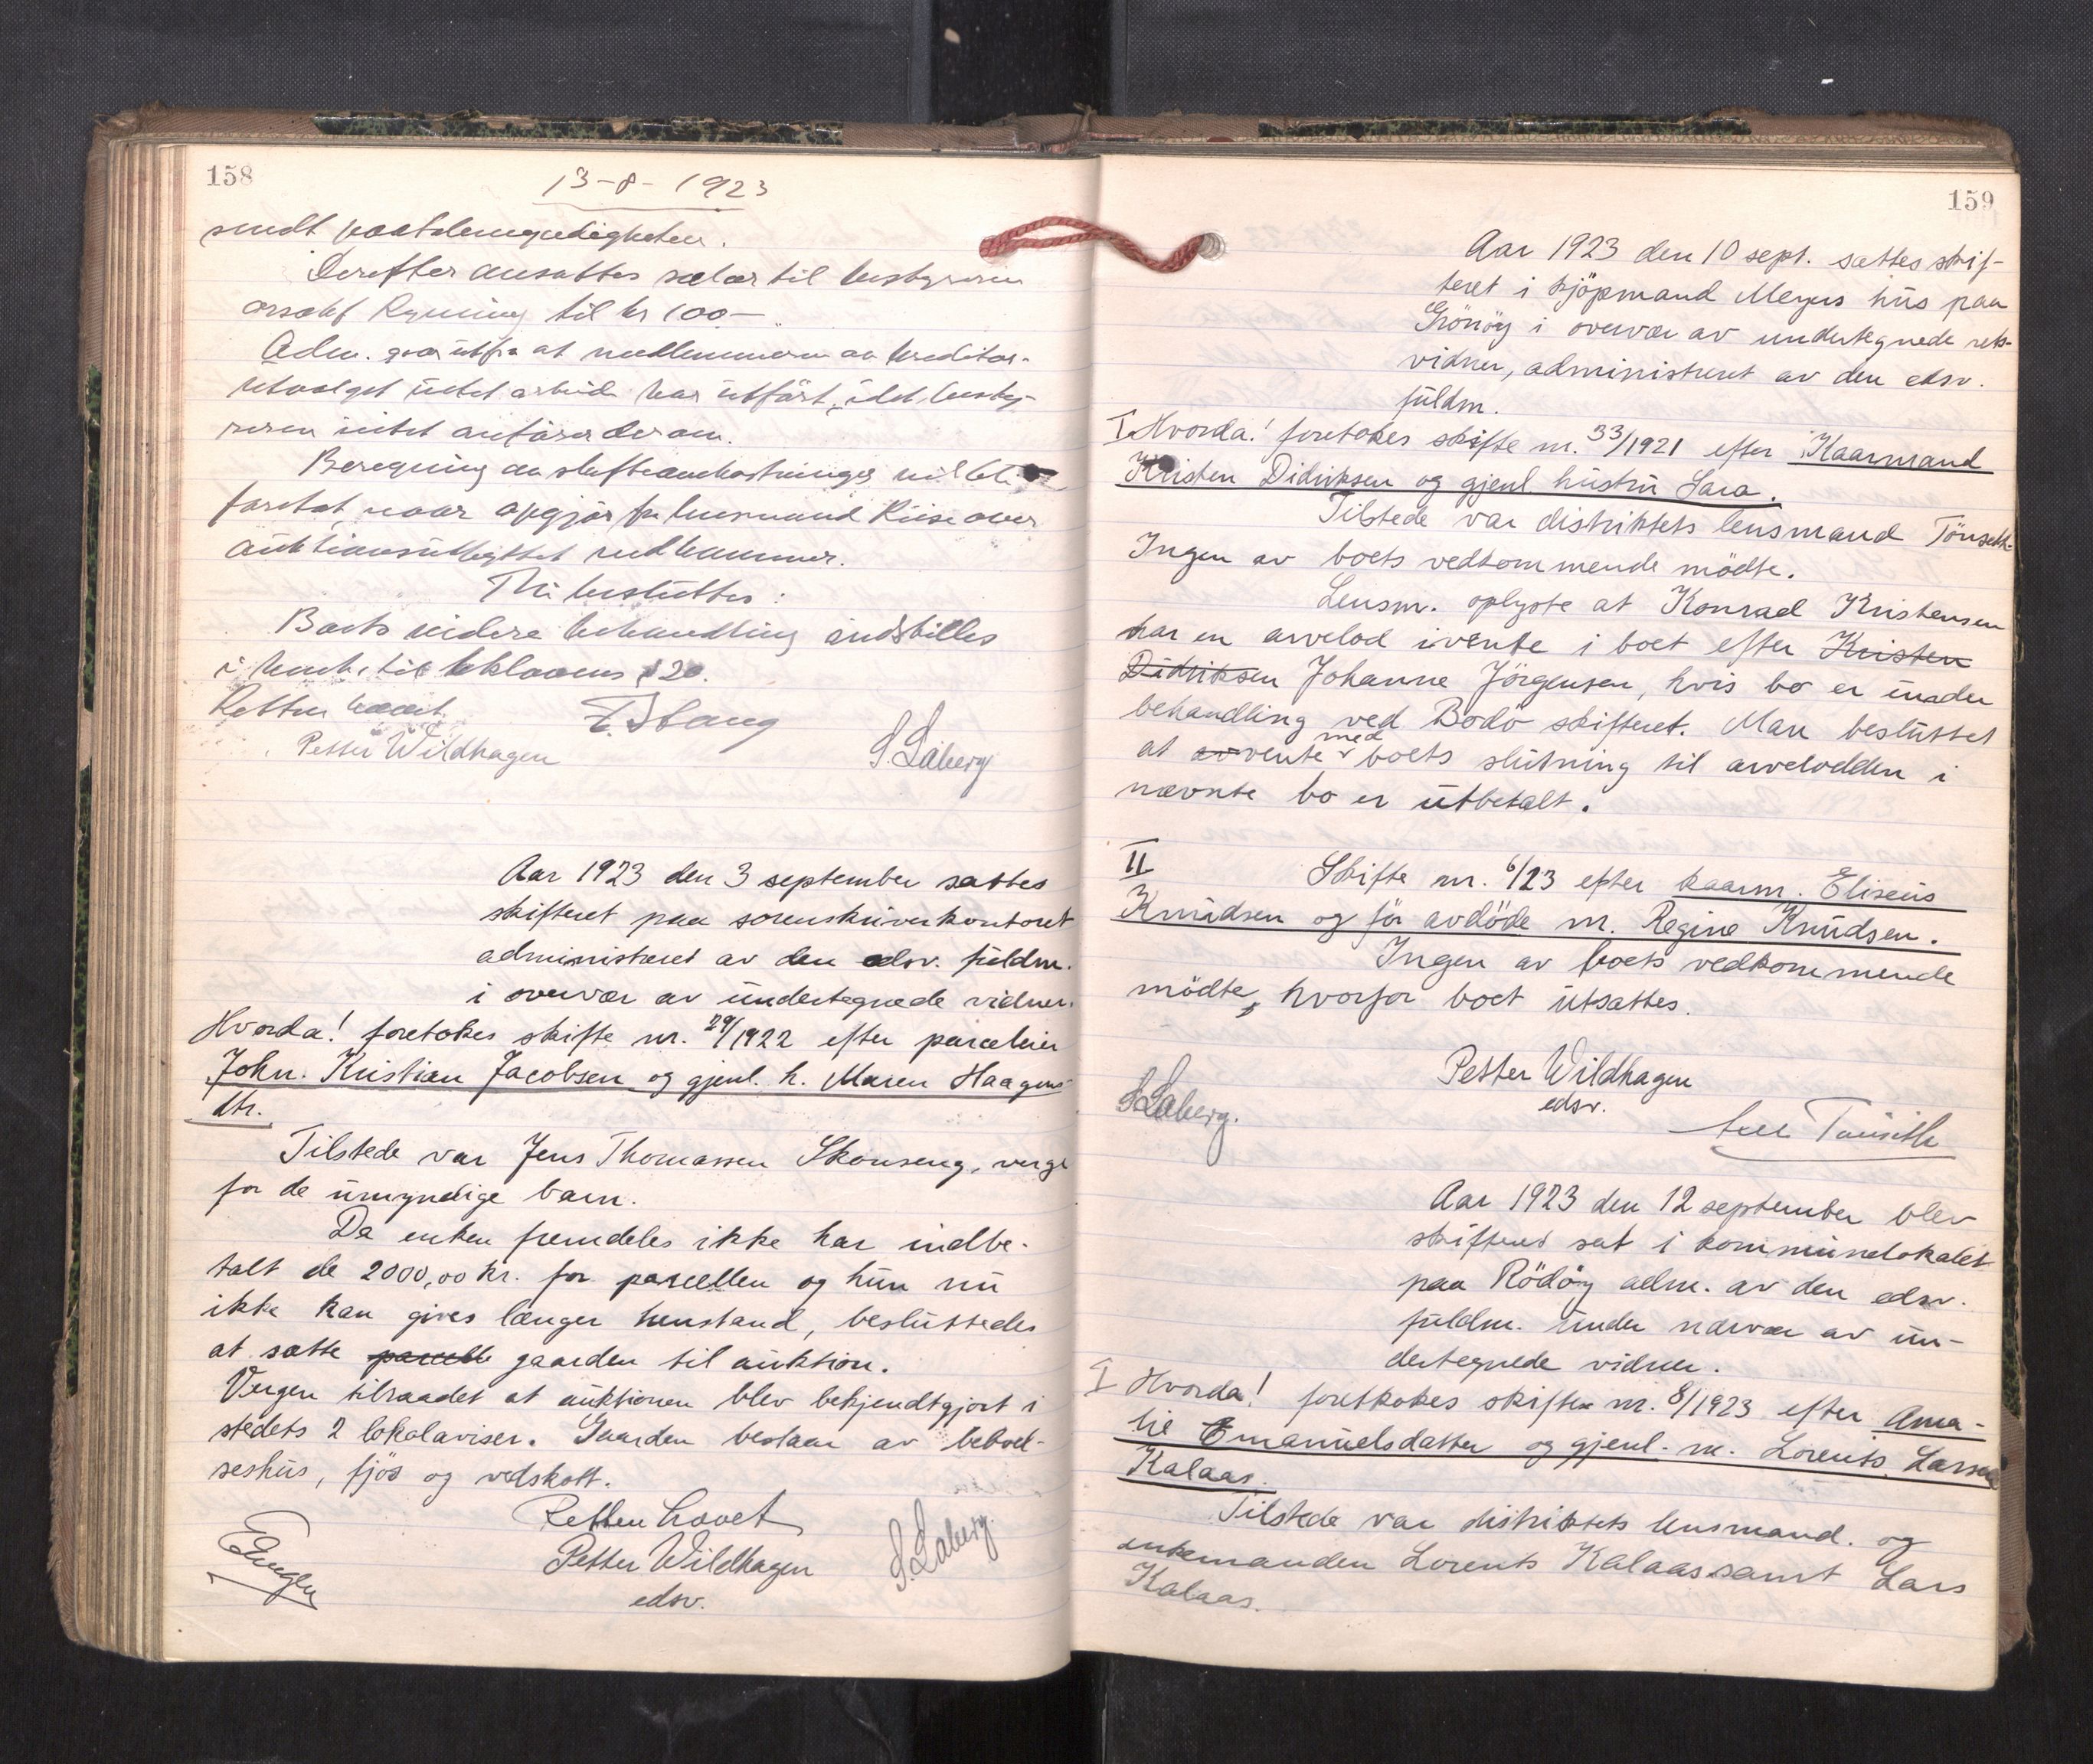 158
13-8-1923
sendt
Derefter ansattes salær til bestyreren
til kr 100-
Adm. gaar ut fra at medlemmerne av kreditor-
utvalget intet arbeide har utført, idet besty-
reren intet anfører derom.
Beregning av skifteomkostninger vil bli
foretat, naar opgjør fra lensmand Riise over
auktionsutbyttet indkommer.
Thi besluttes:
Boets videre behandling indstilles
i til
Retten hævet
Petter Wildhagen
S. Laberg
Aar 1923 den 3 september sattes
skifteret paa sorenskriverkontoret
administreret av den edsv. fuldm.
i overvær av undertegnede vidner.
Hvorda! foretokes skifte nr. 29/1922 efter parceleier
John. Kristian Jacobsen og gjenl. h. Maren Haagens-
dtr.
Tilstede var Jens Thomassen Skonseng, verge
for de umyndige barn.
Da enken fremdeles ikke har indbe-
talt de 2000,00 kr. for parcellen og hun nu
ikke kan gives længer henstand, besluttedes
at sætte parcelle gaarden til auktion.
Vergen tilraadet at auktionen blev bekjendtgjort i
stedets 2 lokalaviser. Gaarden bestaar av beboel-
seshus, fjøs og vedskott.
Retten hævet
Petter Wildhagen
edsv.
S. Laberg
159
Aar 1923 den 10 sept. sattes skif-
teret i kjöpmand Meyers hus paa
Grönöy i overvær av undertegnede rets-
vidner, administreret av den edsv.
fuldm.
I Hvorda! foretokes skifte nr. 33/1921 efter Kaarmand
Kristen Didriksen og gjenl. hustru Sara.
Tilstede var distriktets lensmand Tönseth.
Ingen av boets vedkommende mödte.
Lensm. oplyste at Konrad Kristensen
har en arvelod ivente i boet efter Kristen
Didriksen Johanne Jörgensen, hvis bo er under
behandling ved Bodö skifteret. Man besluttet
at avvente med boets slutning til arvelodden i
nævnte bo er utbetalt.
II
Skifte nr. 6/23 efter kaarm. Eliseus
Knudsen og för avdöde m. Regine Knudsen.
Ingen av boets vedkommende
mödte, hvorfor boet utsattes.
Petter Wildhagen
edsv.
S. Laberg.
Tönseth
Aar 1923 den 12 september blev
skifteret sat i kommunelokalet
paa Rödöy adm. av den edsv.
fuldm. under nærvær av un-
dertegnede vidner.
I Hvorda! foretkokes skifte nr. 8/1923 efter Ama-
lie Emanuelsdatter og gjenl. m. Lorents Larsen
Kalaas.
Tilstede var distriktets lensmand. og
enkemanden Lorents Kalaas samt Lars
Kalaas.